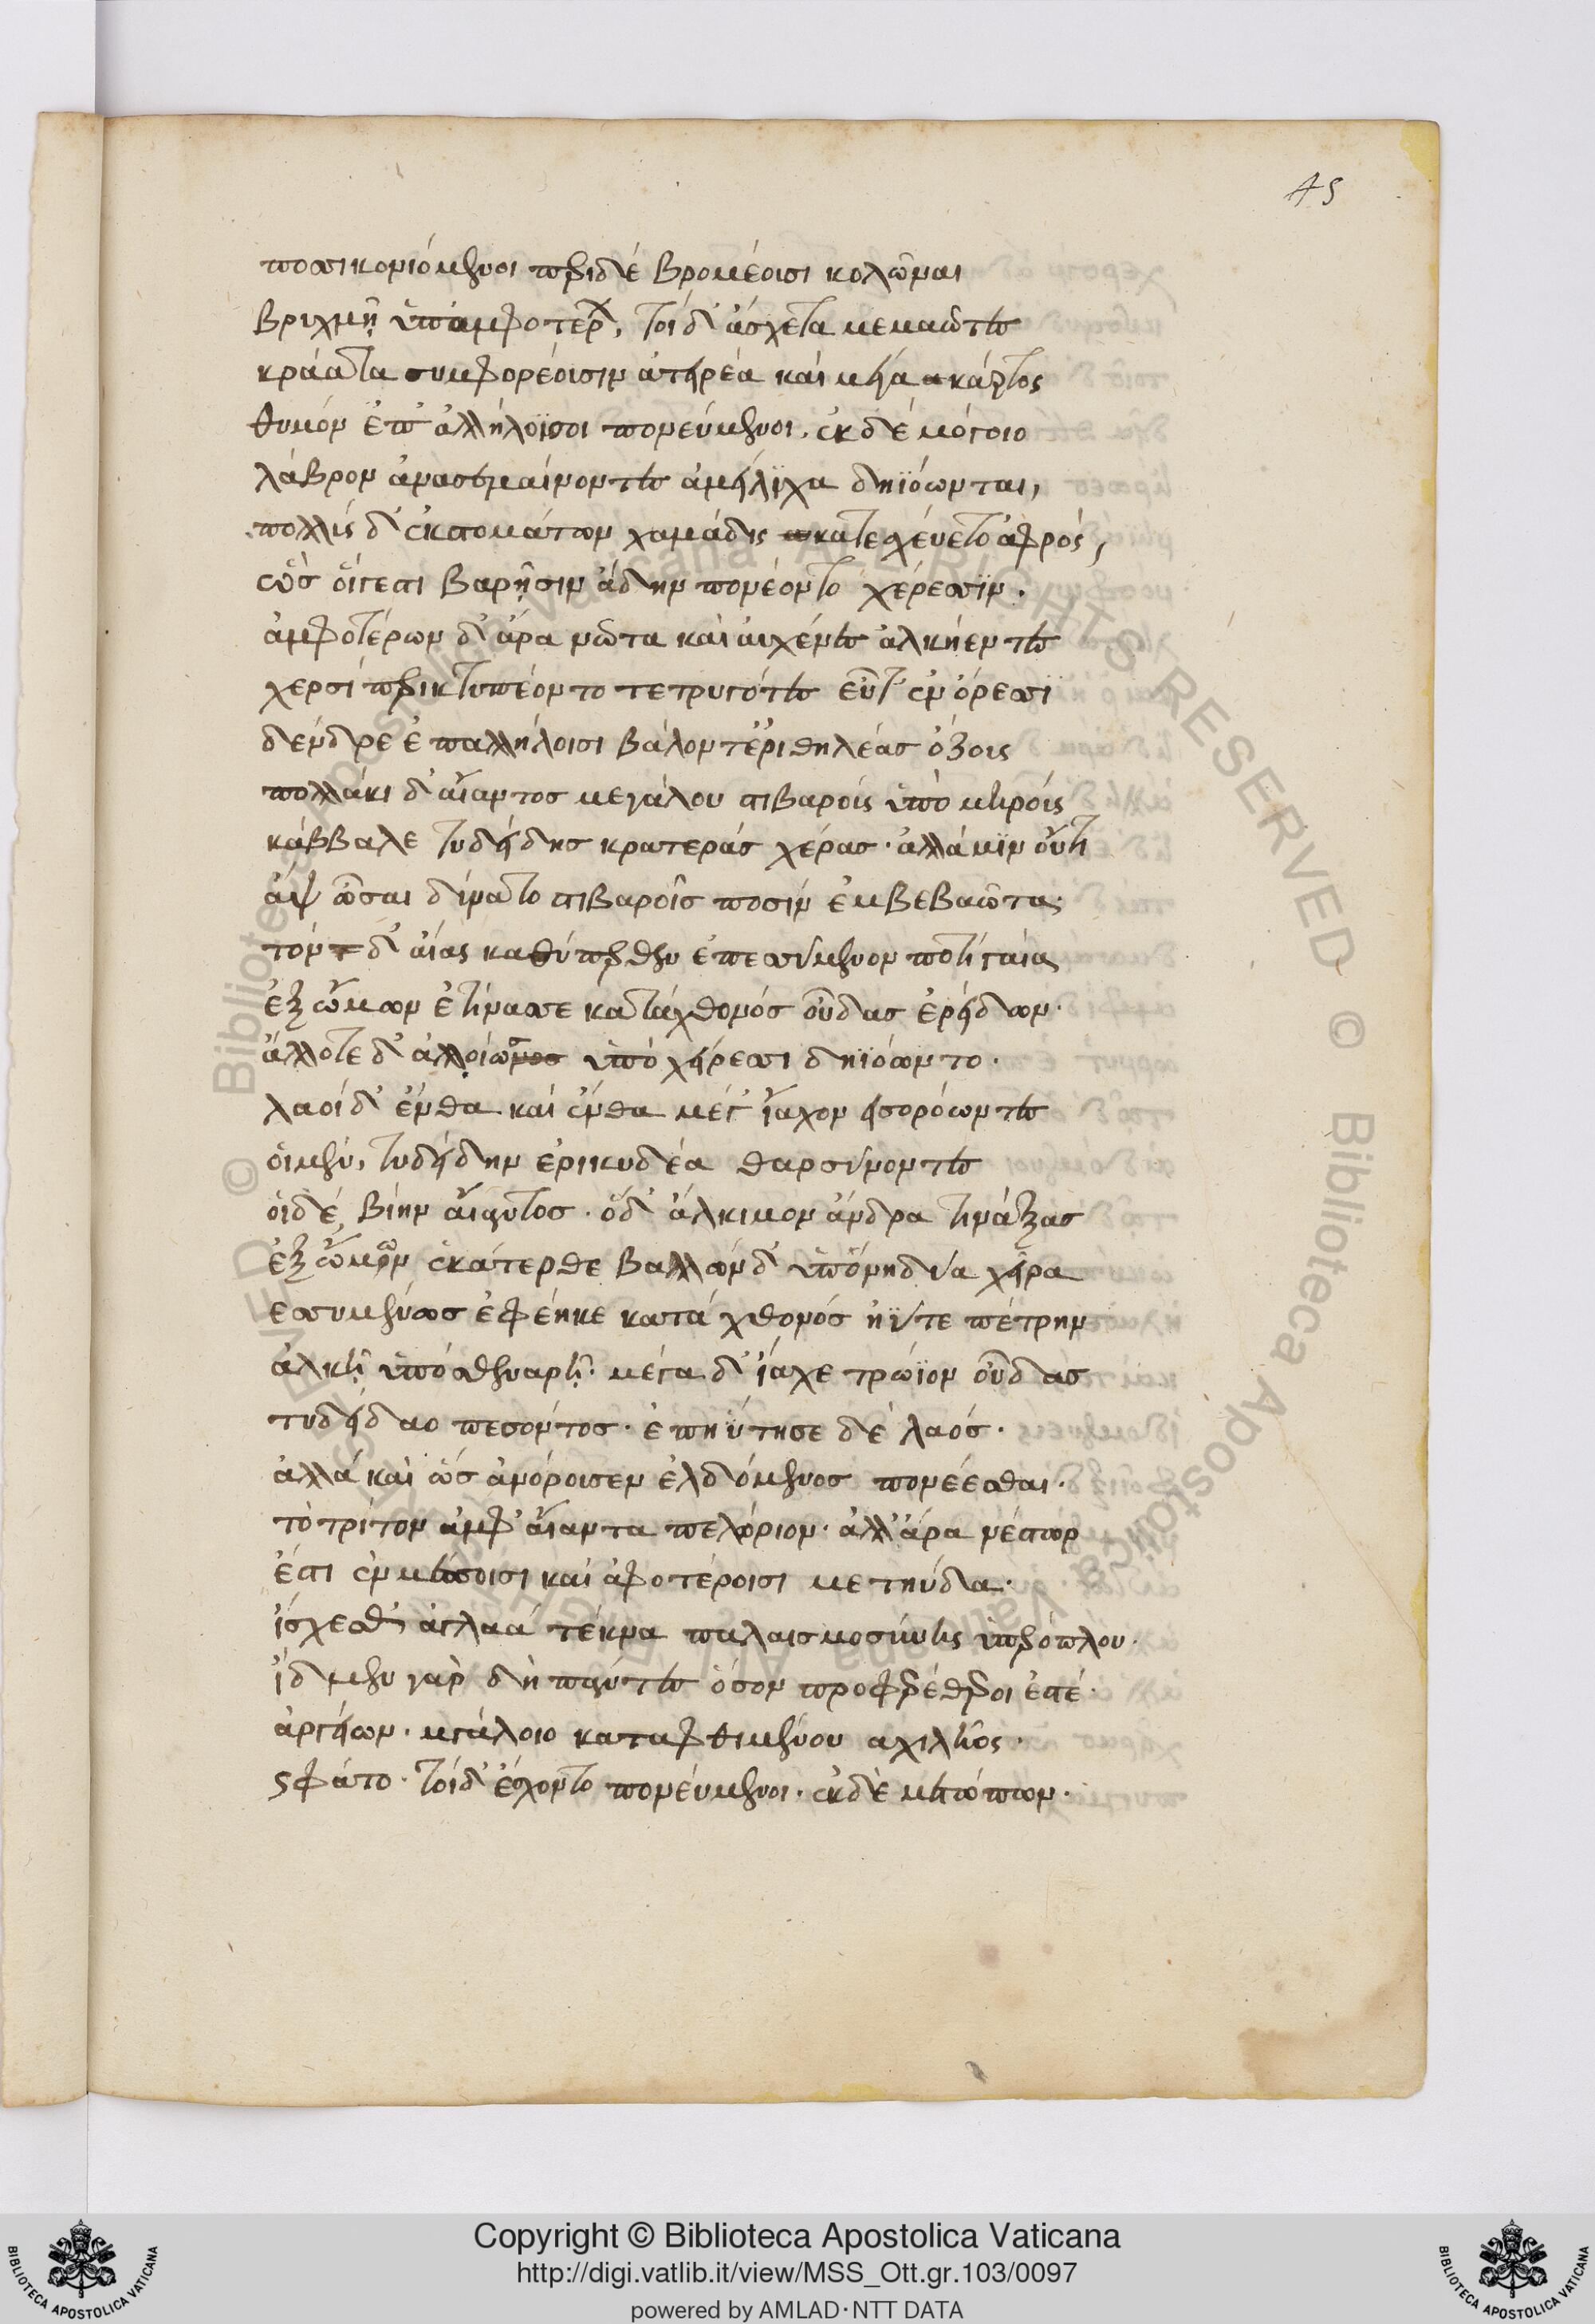 45
ποσσικονιόμενοι περιδέ βρομέοισι κολῶναι
βριχμῇ ὑπαμφοτέρων, τοί δ' ἄσχετα μεμαῶτες
κράατα συμφορέοισιν ἀτειρέα καὶ μέγα κάρτος
θυμὸν ἐπ' ἀλλήλοϊσοι πονεύμενοι. ἐκ δέ μόγοιο
λάβρον ἀνασθμαίνοντες ἀμείλϊχα δηϊόωνται,
πολλύς δ' ἐκστομάτων χαμάδις κατεχέυετο ἀφρός,
ὣς οἵγεστι βαρῇσιν ἄδην πονέοντο χέρεσσϊν.
ἀμφοτέρων δ' ἄρα νῶτα καὶ αὐχένες ἀλκήεντες
χερσί περικτυπέοντο τετρυγότες εὖτ' ἐν ὄρεσσϊ
δένδρε ἐπαλλήλοισι βάλοντ' ἐριθηλέας ὄζοις
πολλάκι δ' αἴαντος μεγάλου στιβαροίς ὑπὸ μηροίς
κάββαλε τυδείδης κρατεράς χέρας. ἀλλά μϊν οὔτι
ἀψ ὦσαι δύνατο στιβαροῖς ποσίν ἐμβεβαῶτα.
τόν δ' αἴας καθύπερθεν ἐπεσσύμενον ποτί γαίας
ἐξ ὤμων ἐτίναξε κατάχθονός οὖδας ἐρείδων.
ἄλλοτε δ' ἀλλοίως ὑπό χείρεσσι δηϊόωντο.
λαοί δ' ἔνθα καὶ ἔνθα μέγ' ἴαχον εἰσορόωντες
οἱμέν, τυδείδην ἐρικυδέα θαρσύνοντες
οἱδέ, βίην αἴαντος. ὅδ' ἄλκιμον ἄνδρα τινάξας
ἐξ ὤμων ἑκάτερθε βαλλών δ' ὑπὸνηδύα χεῖρα
εσσυμένως ἐφέηκε κατά χθονός ἠΰτε πέτρην
ἀλκῇ ὑπό σθεναρῇ. μέγα δ' ἴαχε τρώϊον οὖδας
τυδείδαο πεσόντος. ἐπηΰτησε δὲ λαός.
ἀλλά καὶ ὧς ἀνόροισεν ἐλδόμενος πονέεσθαι.
τὸ τρίτον ἀμφ' αἴαντα πελώριον. ἀλλ' ἄρα νέστωρ
ἔστι ἐν μέσσοισι καὶ ἀφοτέροισι μετηύδα.
ἴσχεσθ' ἀγλαά τέκνα παλαισμοσύνης ὑπερόπλου.
ἴδμεν γὰρ δὴ πάντες ὅσον προφερέστεροι ἐστέ.
ἀργείων. μεγάλοιο καταφθιμένου αχιλῆος.
ὣς φάτο. τοίδ' ἔσχοντο πονεύμενοι. ἐκδὲ μετώπων.
Copyright © Biblioteca Apostolica Vaticana
http://digi.vatlib.it/view/MSS_Ott.gr.103/0097
powered by AMLAD·NTT DATA